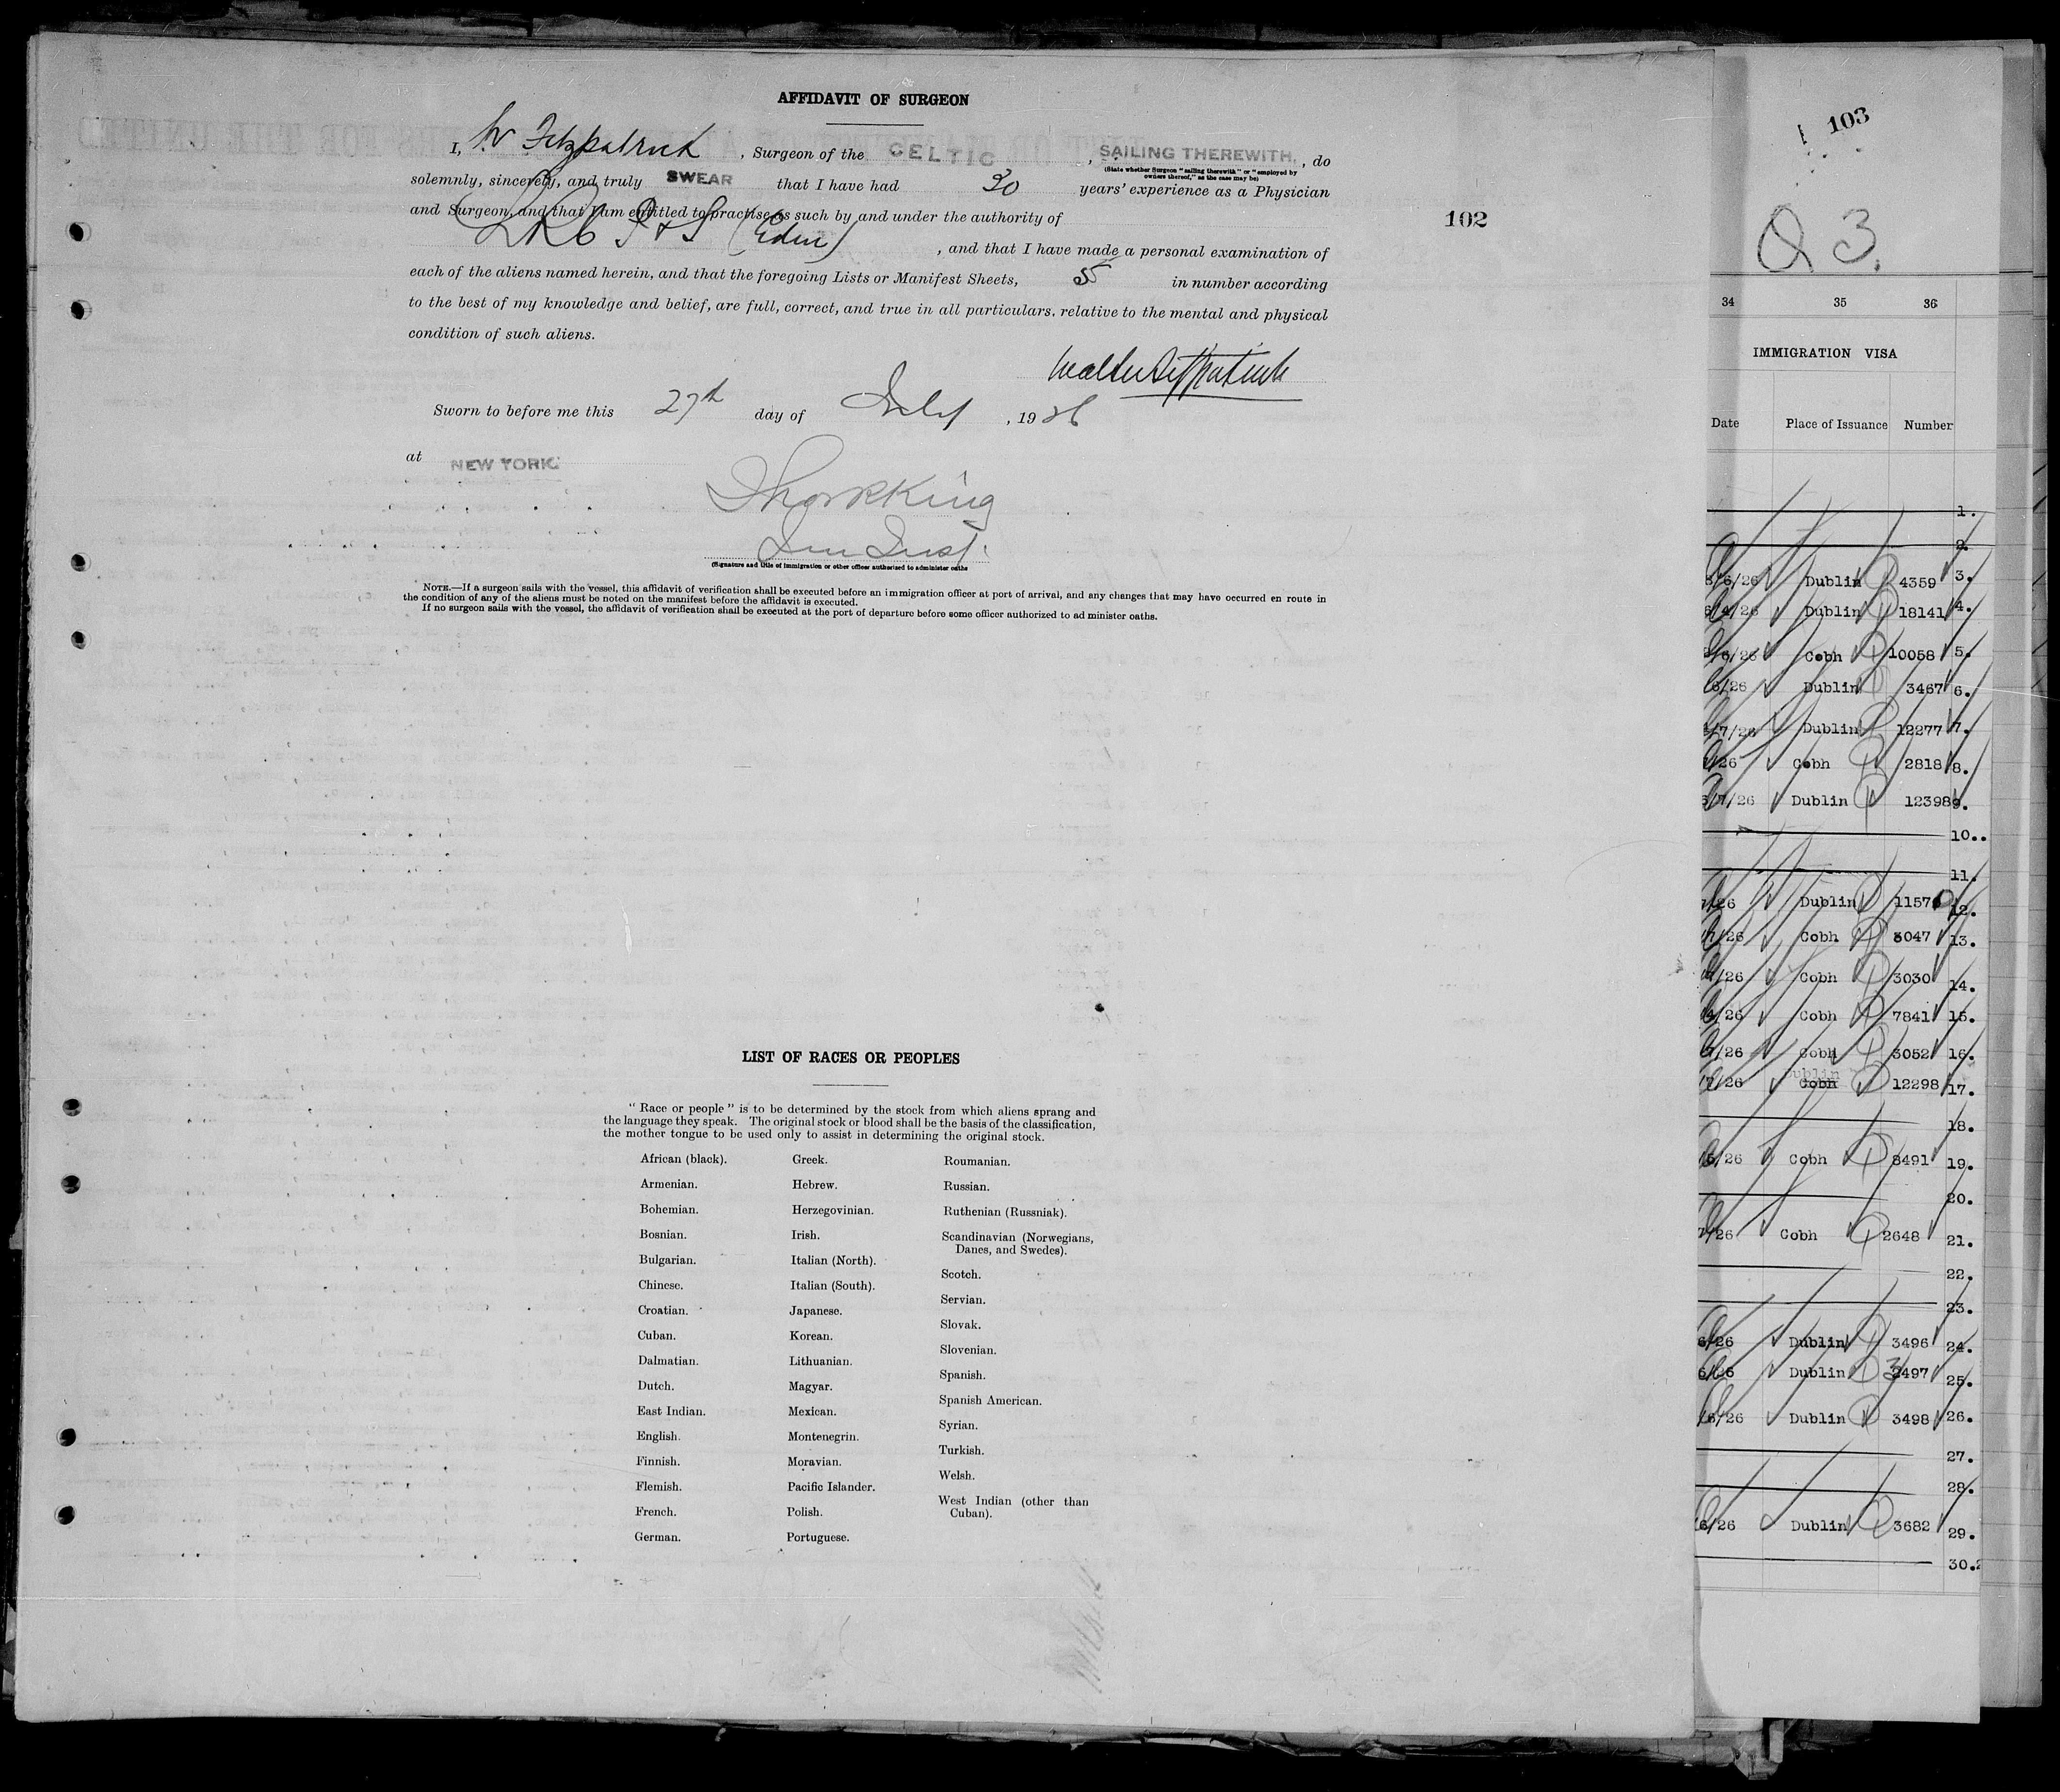 AFFIDAVIT OF SURGEON
I, W Fitzpatrick, Surgeon of the CELTIC, SAILING THEREWITH, do
(State whether Surgeon "sailing therewith" or "employed by
owners thereof," as the case may be)
solemnly, sincerely, and truly SWEAR that I have had 30 years' experience as a Physician
and Surgeon, and that I am entitled to practise as such by and under the authority of
(Edin)
, and that I have made a personal examination of
each of the aliens named herein, and that the foregoing Lists or Manifest Sheets, 5 in number according
to the best of my knowledge and belief, are full, correct, and true in all particulars, relative to the mental and physical
condition of such aliens.
Walter Fitzpatrick
Sworn to before me this 27th day of July, 1926
at NEW YORK.
Imm Insp.
(Signature and title of immigration or other officer authorized to administer oaths
NOTE.—If a surgeon sails with the vessel, this affidavit of verification shall be executed before an immigration officer at port of arrival, and any changes that may have occurred en route in
the condition of any of the aliens must be noted on the manifest before the affidavit is executed.
If no surgeon sails with the vessel, the affidavit of verification shall be executed at the port of departure before some officer authorized to ad minister oaths.
102
LIST OF RACES OR PEOPLES
"Race or people" is to be determined by the stock from which aliens sprang and
the language they speak. The original stock or blood shall be the basis of the classification,
the mother tongue to be used only to assist in determining the original stock.
African (black).
Armenian.
Bohemian.
Bosnian.
Bulgarian.
Chinese.
Croatian.
Cuban.
Dalmatian.
Dutch.
East Indian.
English.
Finnish.
Flemish.
French.
German.
Greek.
Hebrew.
Herzegovinian.
Irish.
Italian (North).
Italian (South).
Japanese.
Korean.
Lithuanian.
Magyar.
Mexican.
Montenegrin.
Moravian.
Pacific Islander.
Polish.
Portuguese.
Roumanian.
Russian.
Ruthenian (Russniak).
Scandinavian (Norwegians,
Danes, and Swedes).
Scotch.
Servian.
Slovak.
Slovenian.
Spanish.
Spanish American.
Syrian.
Turkish.
Welsh.
West Indian (other than
Cuban).
103
Q 3.
34 35 36
IMMIGRATION VISA
Date Place of Issuance Number
1.
2.
/6/26 Dublin 4359 3.
/4/26 Dublin 18141 4.
/6/26 Cobh 10058 5.
/6/26 Dublin 3467 6.
/7/26 Dublin 12277 7.
/26 Cobh 2818 8.
/7/26 Dublin 12398 9.
10..
11.
/26 Dublin 1157 12.
/26 Cobh 3047 13.
/26 Cobh 3030 14.
/26 Cobh 7841 15.
/26 Cobh 3052 16.
7/26 Dublin Cobh 12298 17.
18.
5/26 Cobh 8491 19.
20.
7/26 Cobh 2648 21.
22.
23.
6/26 Dublin 3496 24.
6/26 Dublin 3497 25.
6/26 Dublin 3498 26.
27.
28.
6/26 Dublin 3682 29.
30.